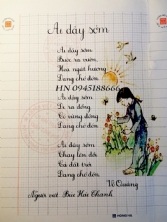 Ai dậy sớm
Ai dậy sớm
Bước ra vườn,
Hoa ngát hương
Đang chờ đón.
HN 0945188666
Ai dậy sớm
Đi ra đồng,
Có vừng đông
Đang chờ đón.
Ai dậy sớm
Chạy lên đồi,
Cả đất trời
Đang chờ đón.
Võ Quảng
Người viết Bùi Hữu Thanh